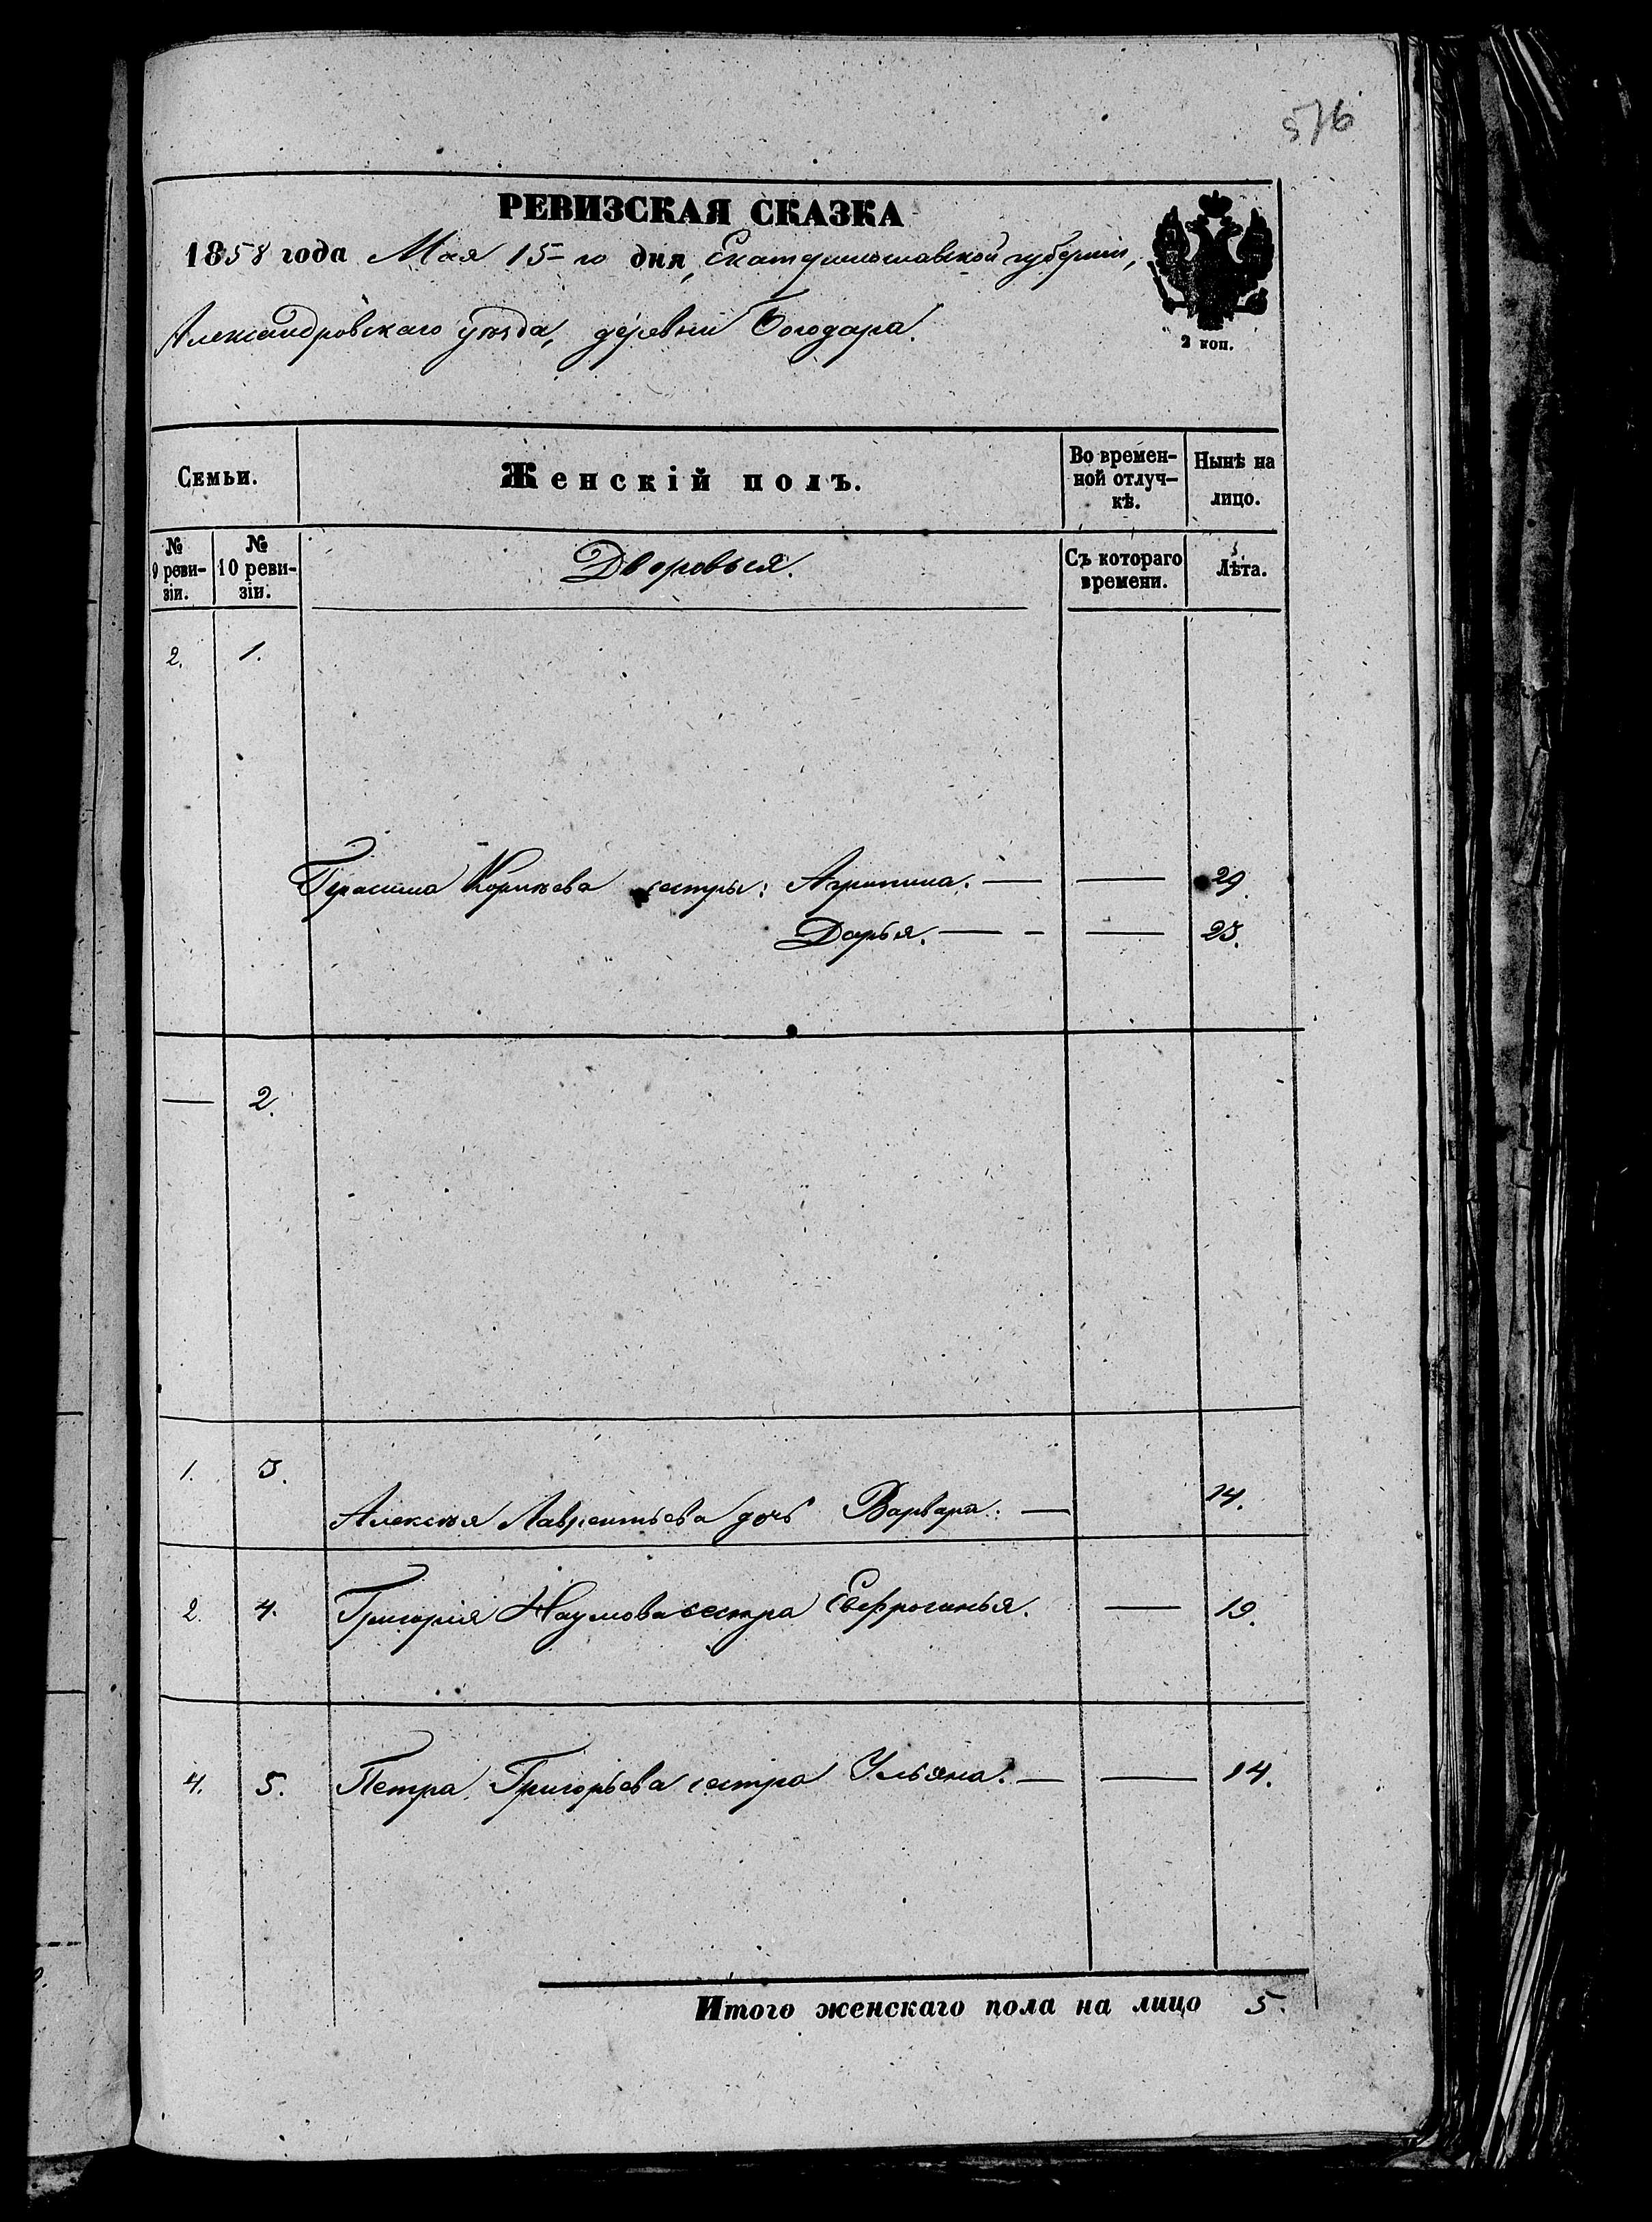 576
РЕВИЗСКАЯ СКАЗКА
1858 года Мая 15-го дня, Екатеринославской губернии,
Александровскаго уѣзда, деревни Богодара.
2 коп.
Семьи. Женскій полъ. Во времен-ной отлуч-кѣ. Нынѣ на лицо.
№ 9 реви-зіи. № 10 реви-зіи. Дворовыя. Съ котораго времени. Лѣта.
2. 1.
Герасима сестры: Агрипина. — — 29.
Дарья. — - — 23.
— 2.
1. 3.
Алексѣя Лаврентьева дочь Варвара. — 14.
2. 4. Григорія Наумова сестра Евфросинья. — 19.
4. 5. Петра Григорьева сестра Ульяна. — — 14.
Итого женскаго пола на лицо 5.